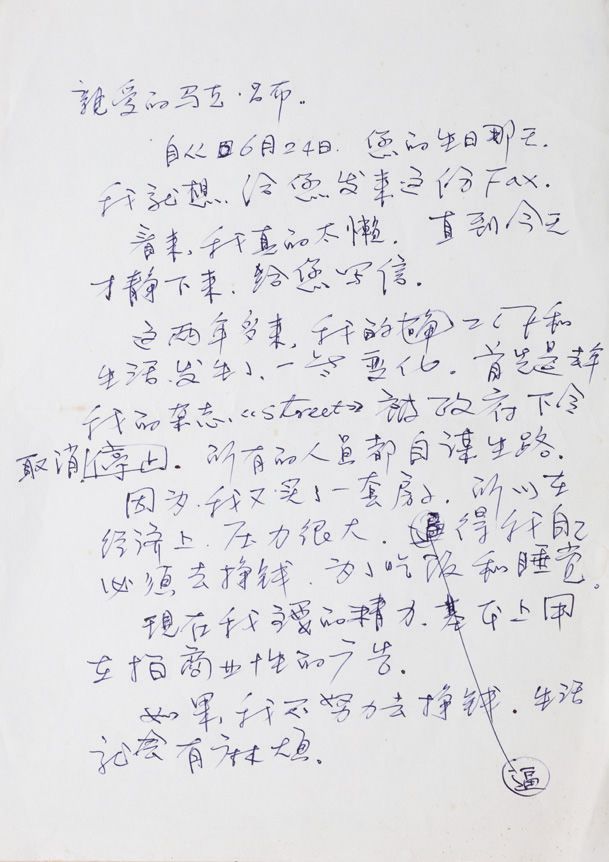 親爱的马克·吕布。
自从6月24日.您的生日那天.
我就想.给您发来这份Fax.
看来,我真的太懒.直到今天
才静下来.给您写信.
这两年多来,我的工作和
生活.发生了.一些变化.首先是
我的杂志.《street》被政府下令
取消停止.所有的人员都自谋生路.
因为.我又买了一套房子.所以在
经济上.压力很大.逼得我自己
必须去挣钱.为了吃饭和睡觉。
现在我主要的精力.基本上用
在拍商业性的广告.
如果,我不努力去挣钱.生活
就会有麻烦.
逼